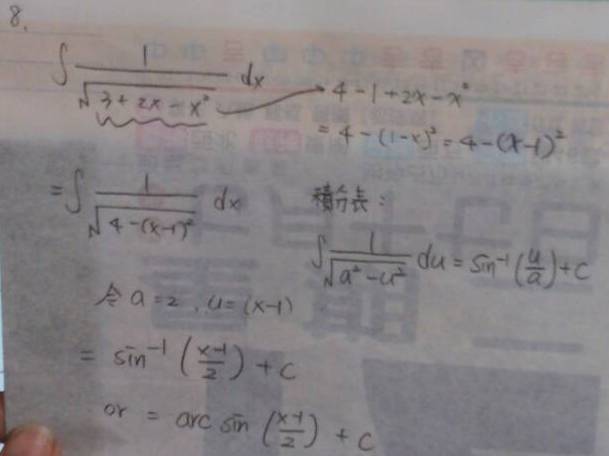 8.
∫ 1/√(3+2x-x²) dx → 4-1+2x-x²
= 4-(1-x)² = 4-(x-1)²
= ∫ 1/√(4-(x-1)²) dx
積分表:
∫ 1/√(a²-u²) du = sin⁻¹(u/a)+c
令 a=2, u=(x-1)
= sin⁻¹((x-1)/2) + c
or = arc sin ((x-1)/2) + c